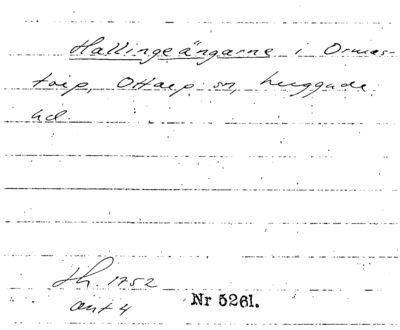 Hallingeängarne i Ormas-
torp, Ottarp sn, Luggude
hd.
th. 1752
ant 4
Nr 5261.